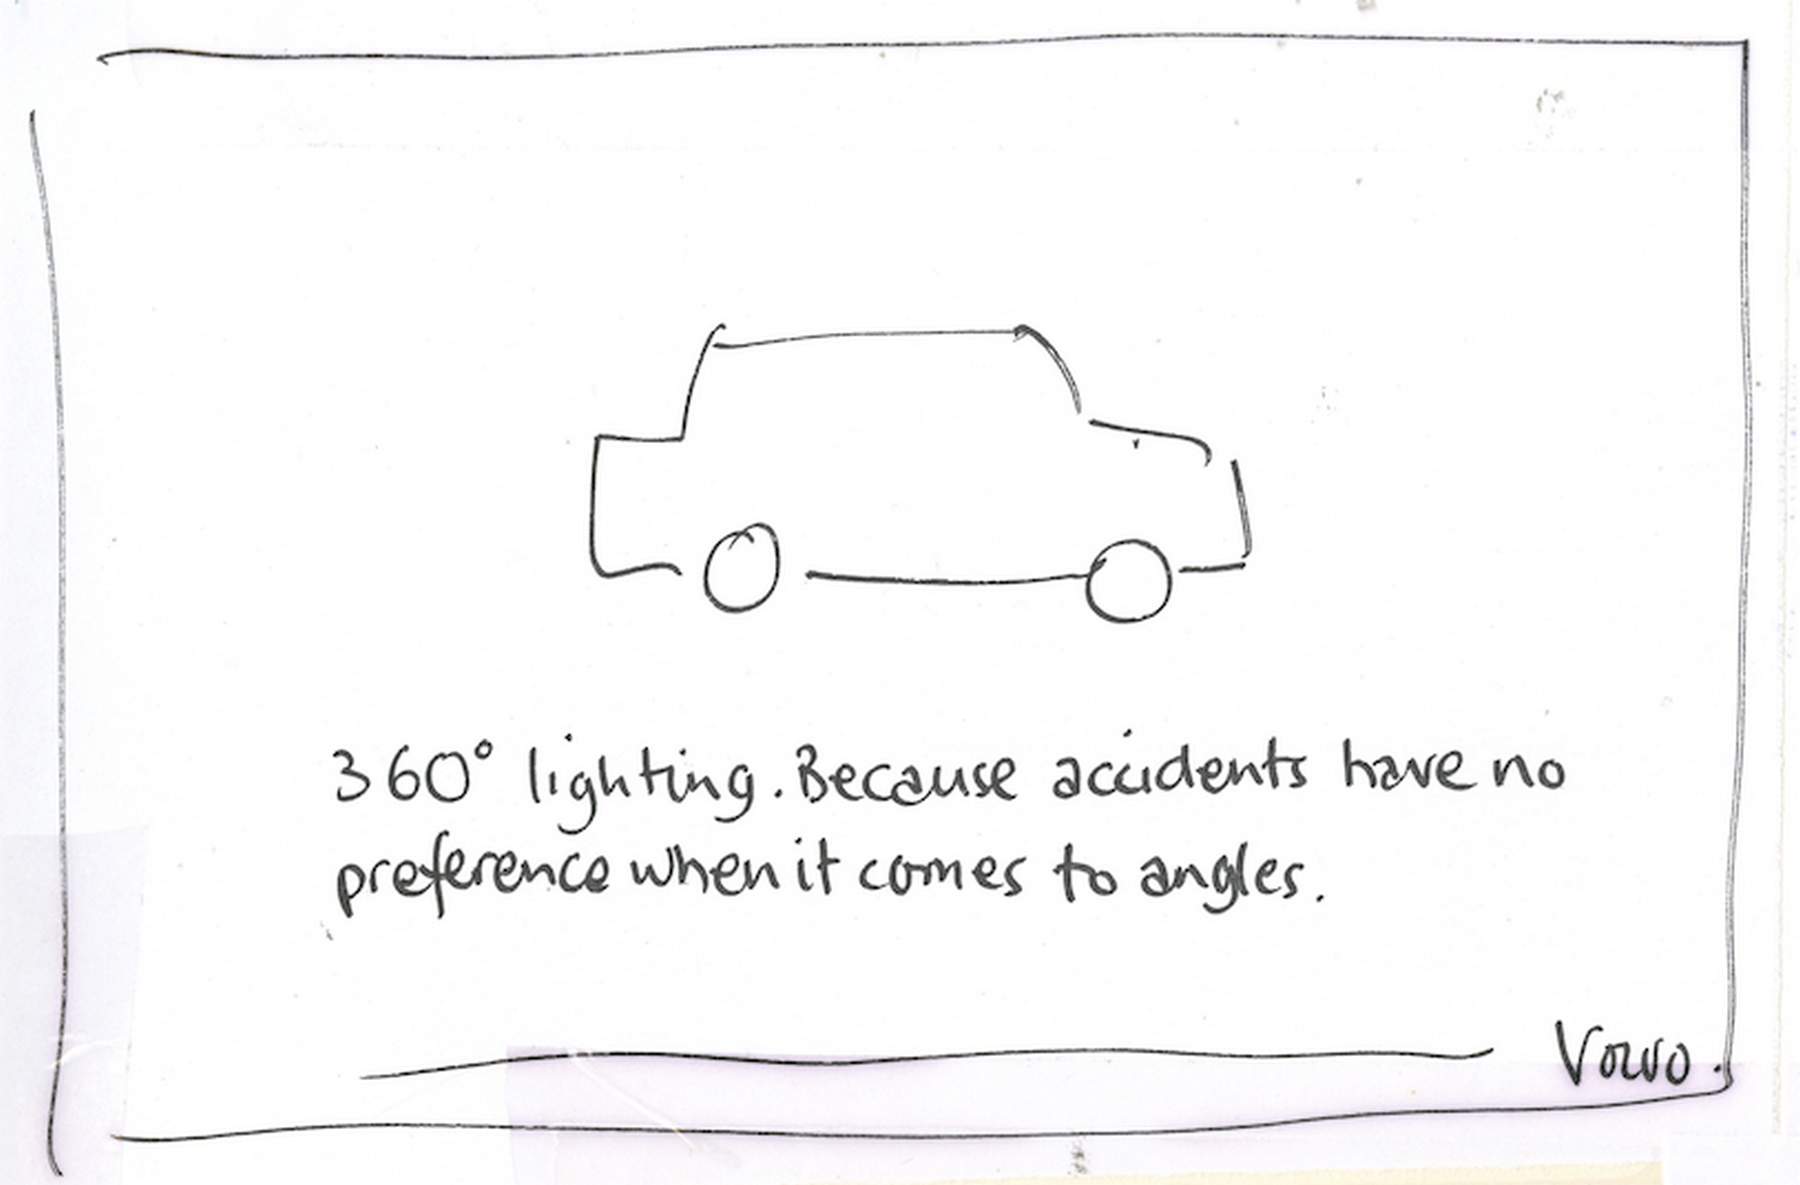 360° lighting. Because accidents have no
preference when it comes to angles.
Volvo.